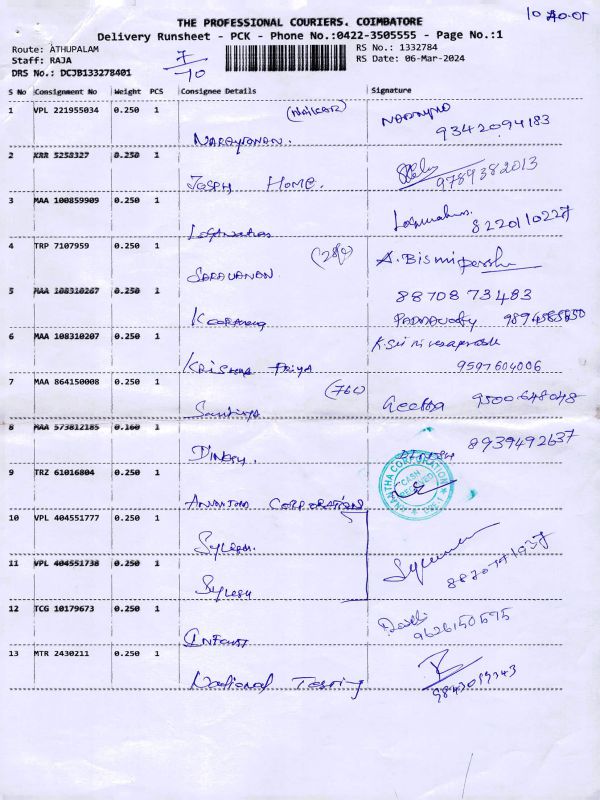 THE PROFESSIONAL COURIERS. COIMBATORE
Delivery Runsheet - PCK - Phone No.:0422-3505555 - Page No.:1
Route: ATHUPALAM
Staff: RAJA
DRS No.: DCJB133278401
7/10
RS No.: 1332784
RS Date: 06-Mar-2024
S No Consignment No Weight PCS Consignee Details Signature
1 VPL 221955034 0.250 1 NARAYANAN.
9342094183
2 KRR 5258327 0.250 1 JOSPH HOME.
9789382013
3 MAA 100859909 0.250 1 Loganathan
8220110227
4 TRP 7107959 0.250 1 SARAVANAN A.Bismiparshi
5 MAA 108310267 0.250 1
88708 73483
6 MAA 108310207 0.250 1 KRISHNA PRIYA
9597604006
7 MAA 864150008 0.250 1 (76L) Geetha 9500648048
8 MAA 573812185 0.160 1 DINESH.
8939492637
9 TRZ 61016804 0.250 1 ANANTHA CORPORATION
ANANTHA CORPORATION
CASH
10 VPL 404551777 0.250 1 Sylesh.
11 VPL 404551738 0.250 1 Sylesh
12 TCG 10179673 0.250 1
9626150595
13 MTR 2430211 0.250 1 National Testing